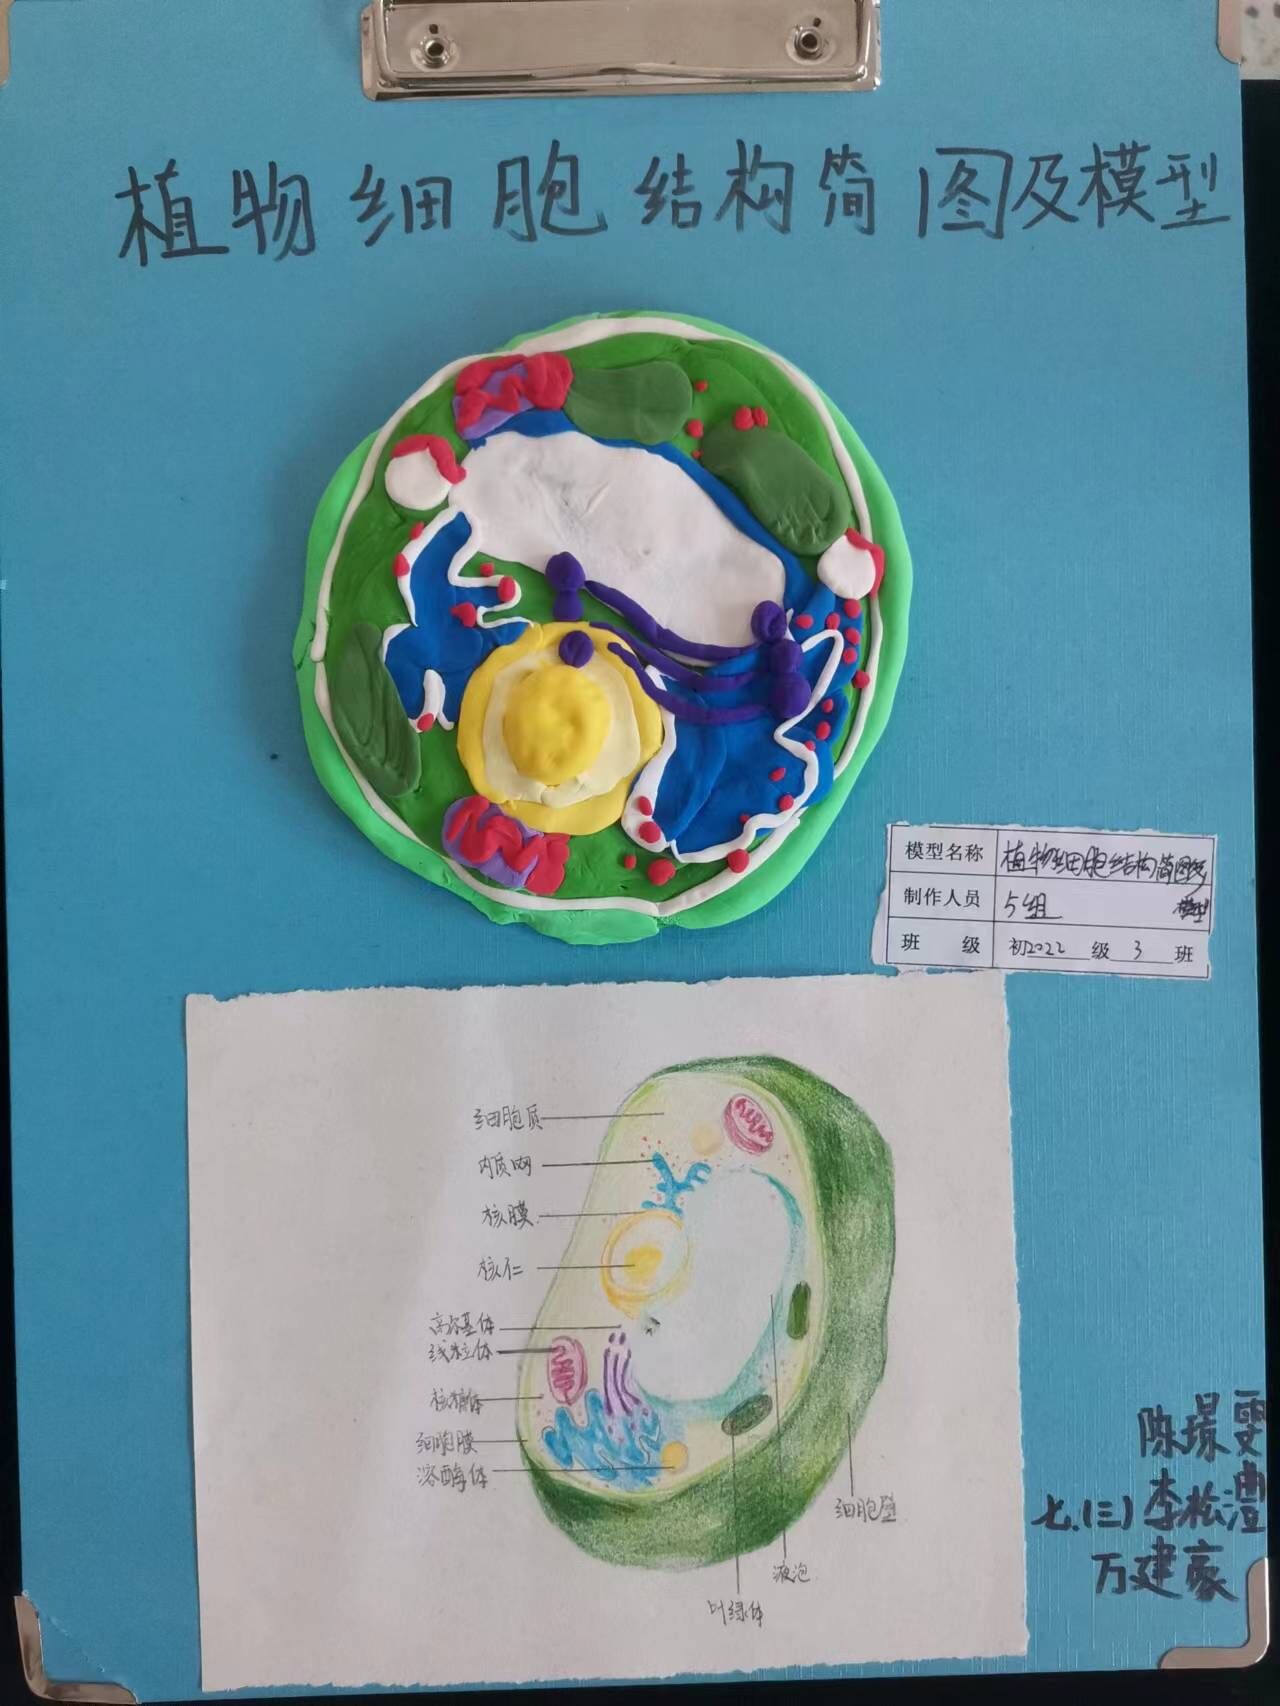 植物细胞结构简图及模型
模型名称 植物细胞结构简图及
模型
制作人员 5组
班级 初2022级3班
细胞质
内质网
核膜
核仁
高尔基体
线粒体
核糖体
细胞膜
溶酶体
细胞壁
液泡
叶绿体
陈璟雯
七.(三)李松澧
万建豪